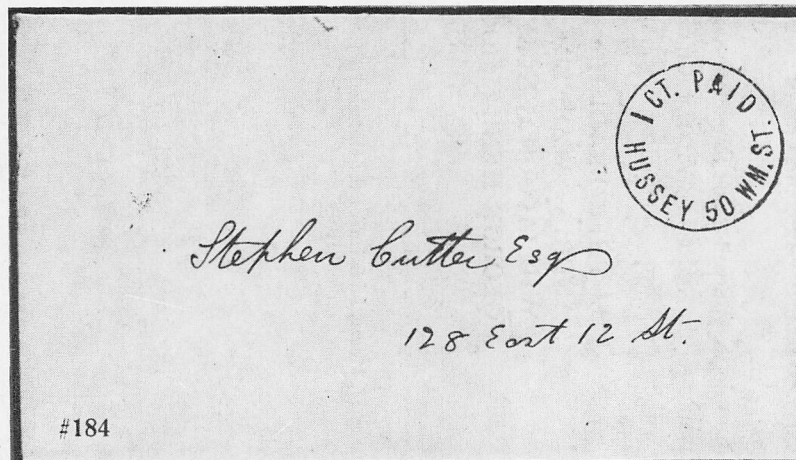 1 CT. PAID
HUSSEY 50 WM. ST.
Stephen Cutter Esq
128 East 12 St.
#184